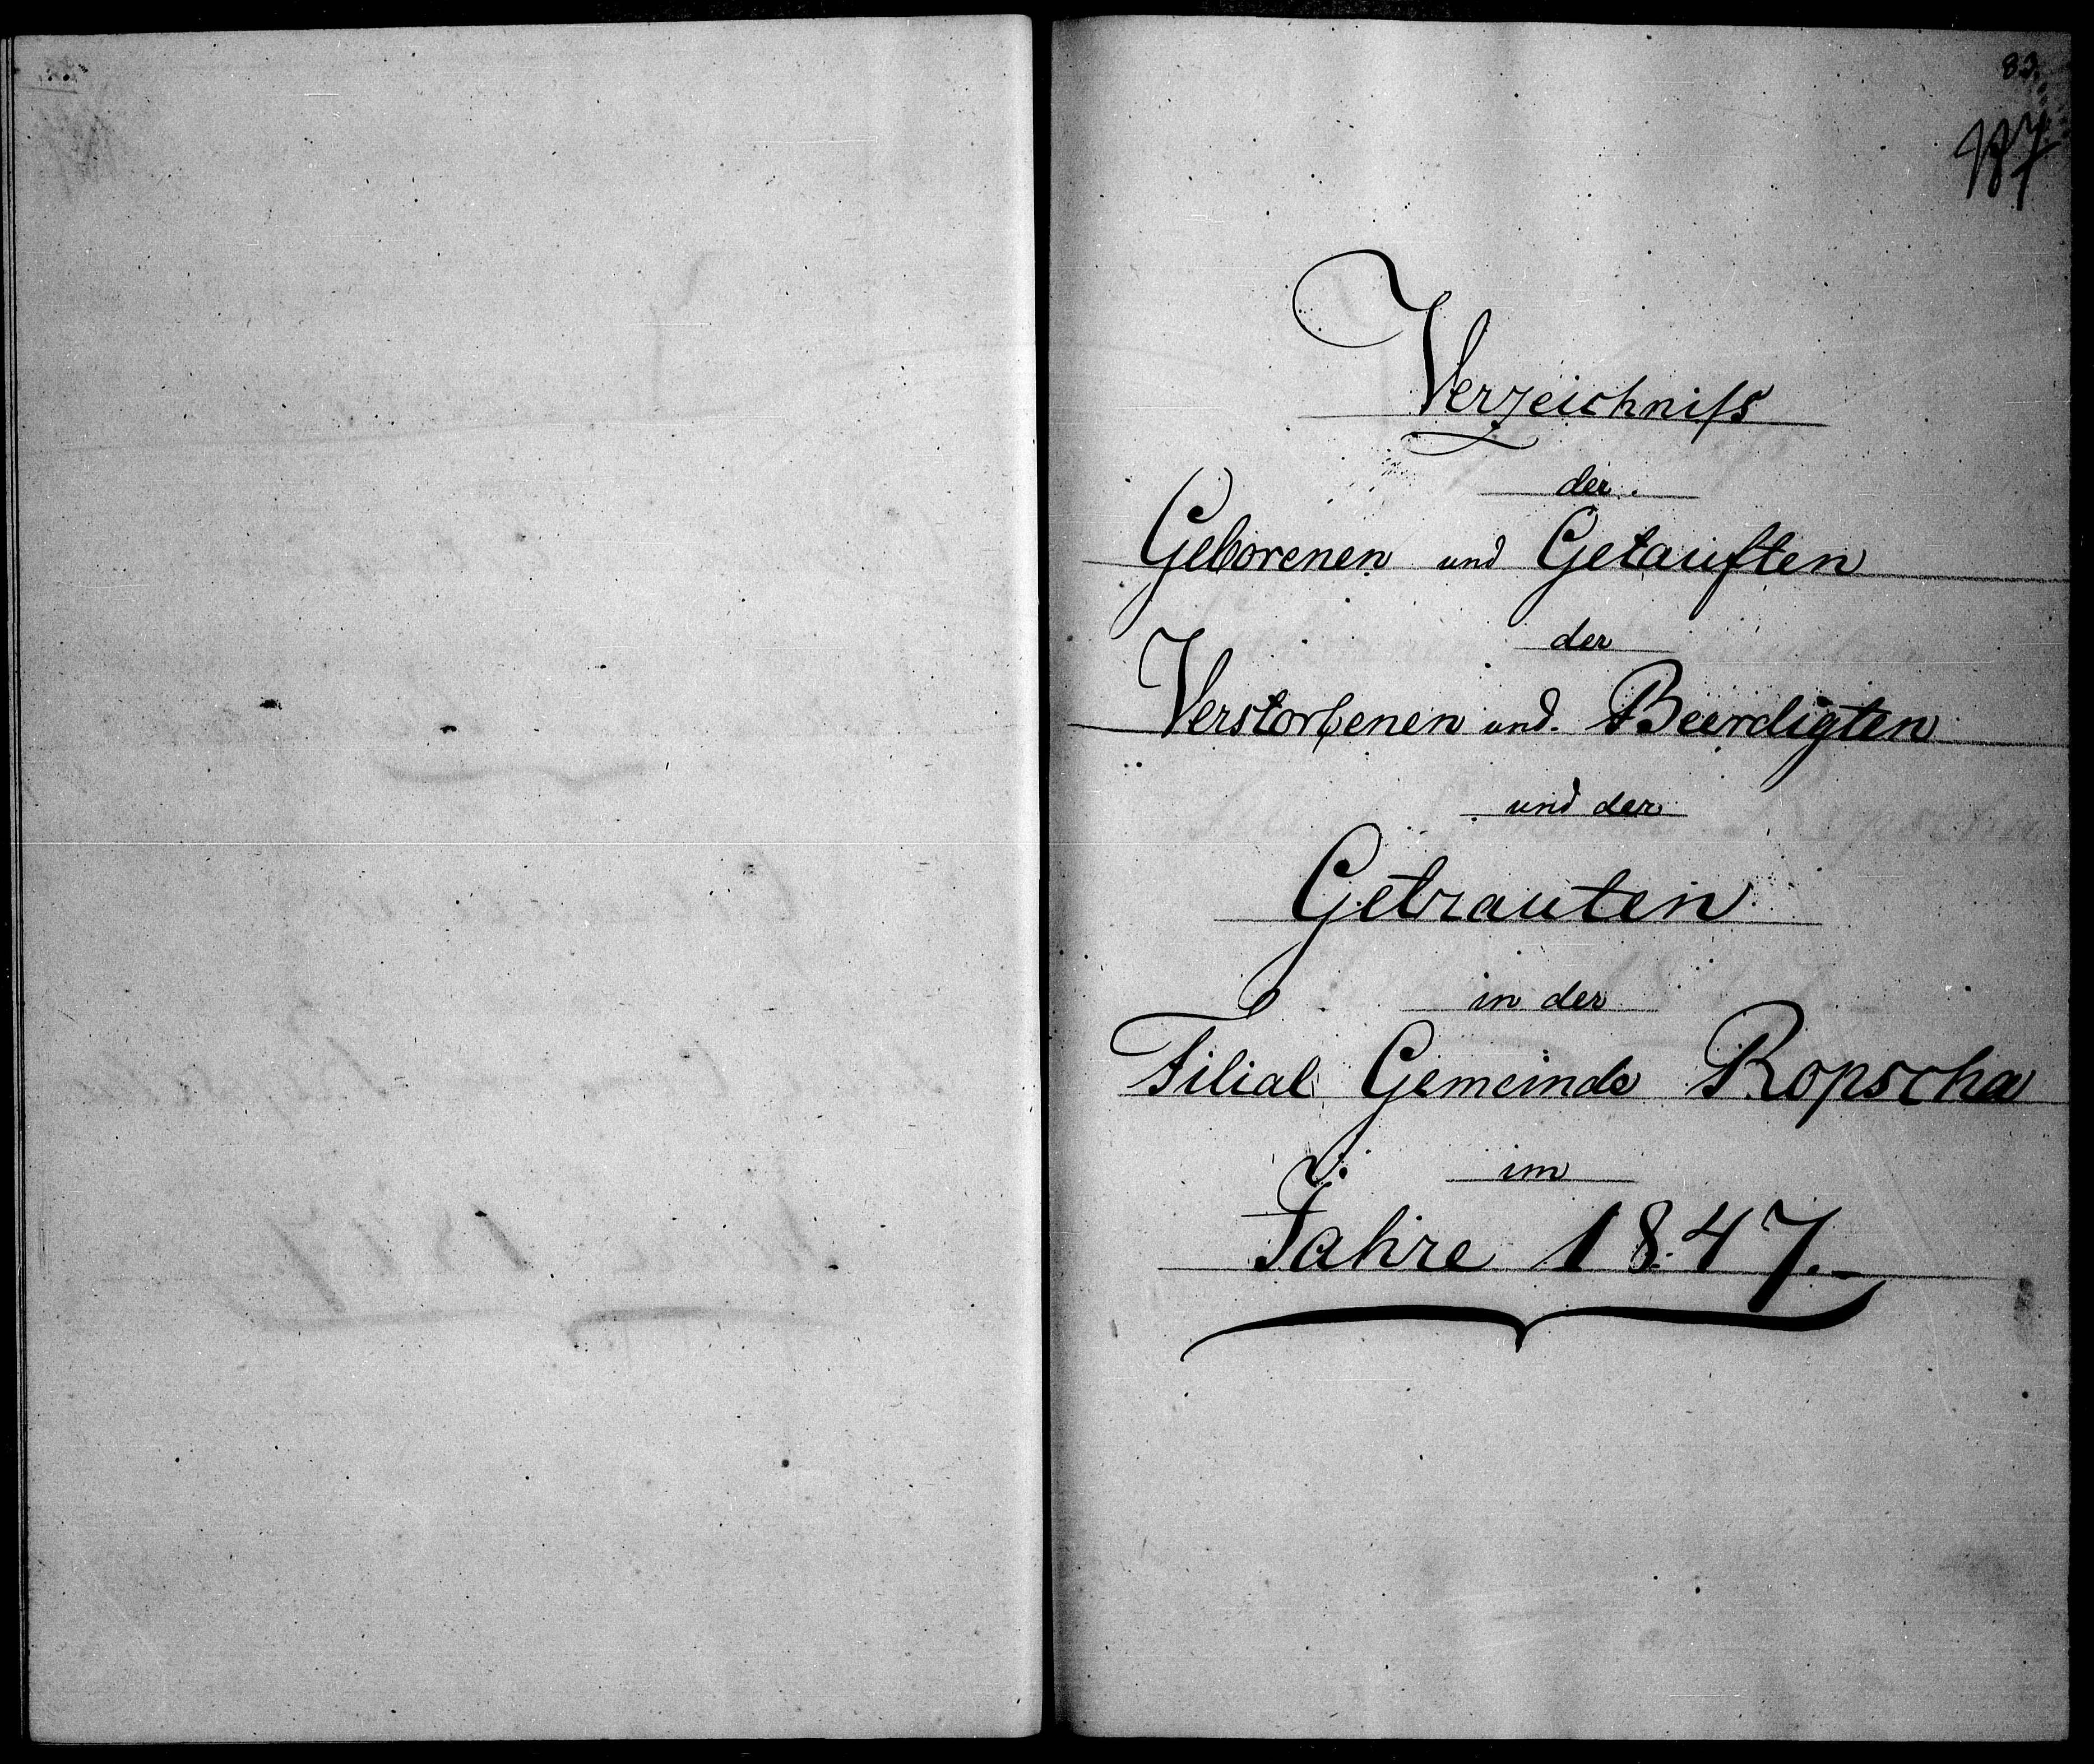 83.
Verzeichniſs
der
Geborenen und Getauften
der
Verstorbenen und Beerdigten
und der
Getrauten
in der
Filial Gemeinde Ropscha
im
Jahre 1847.